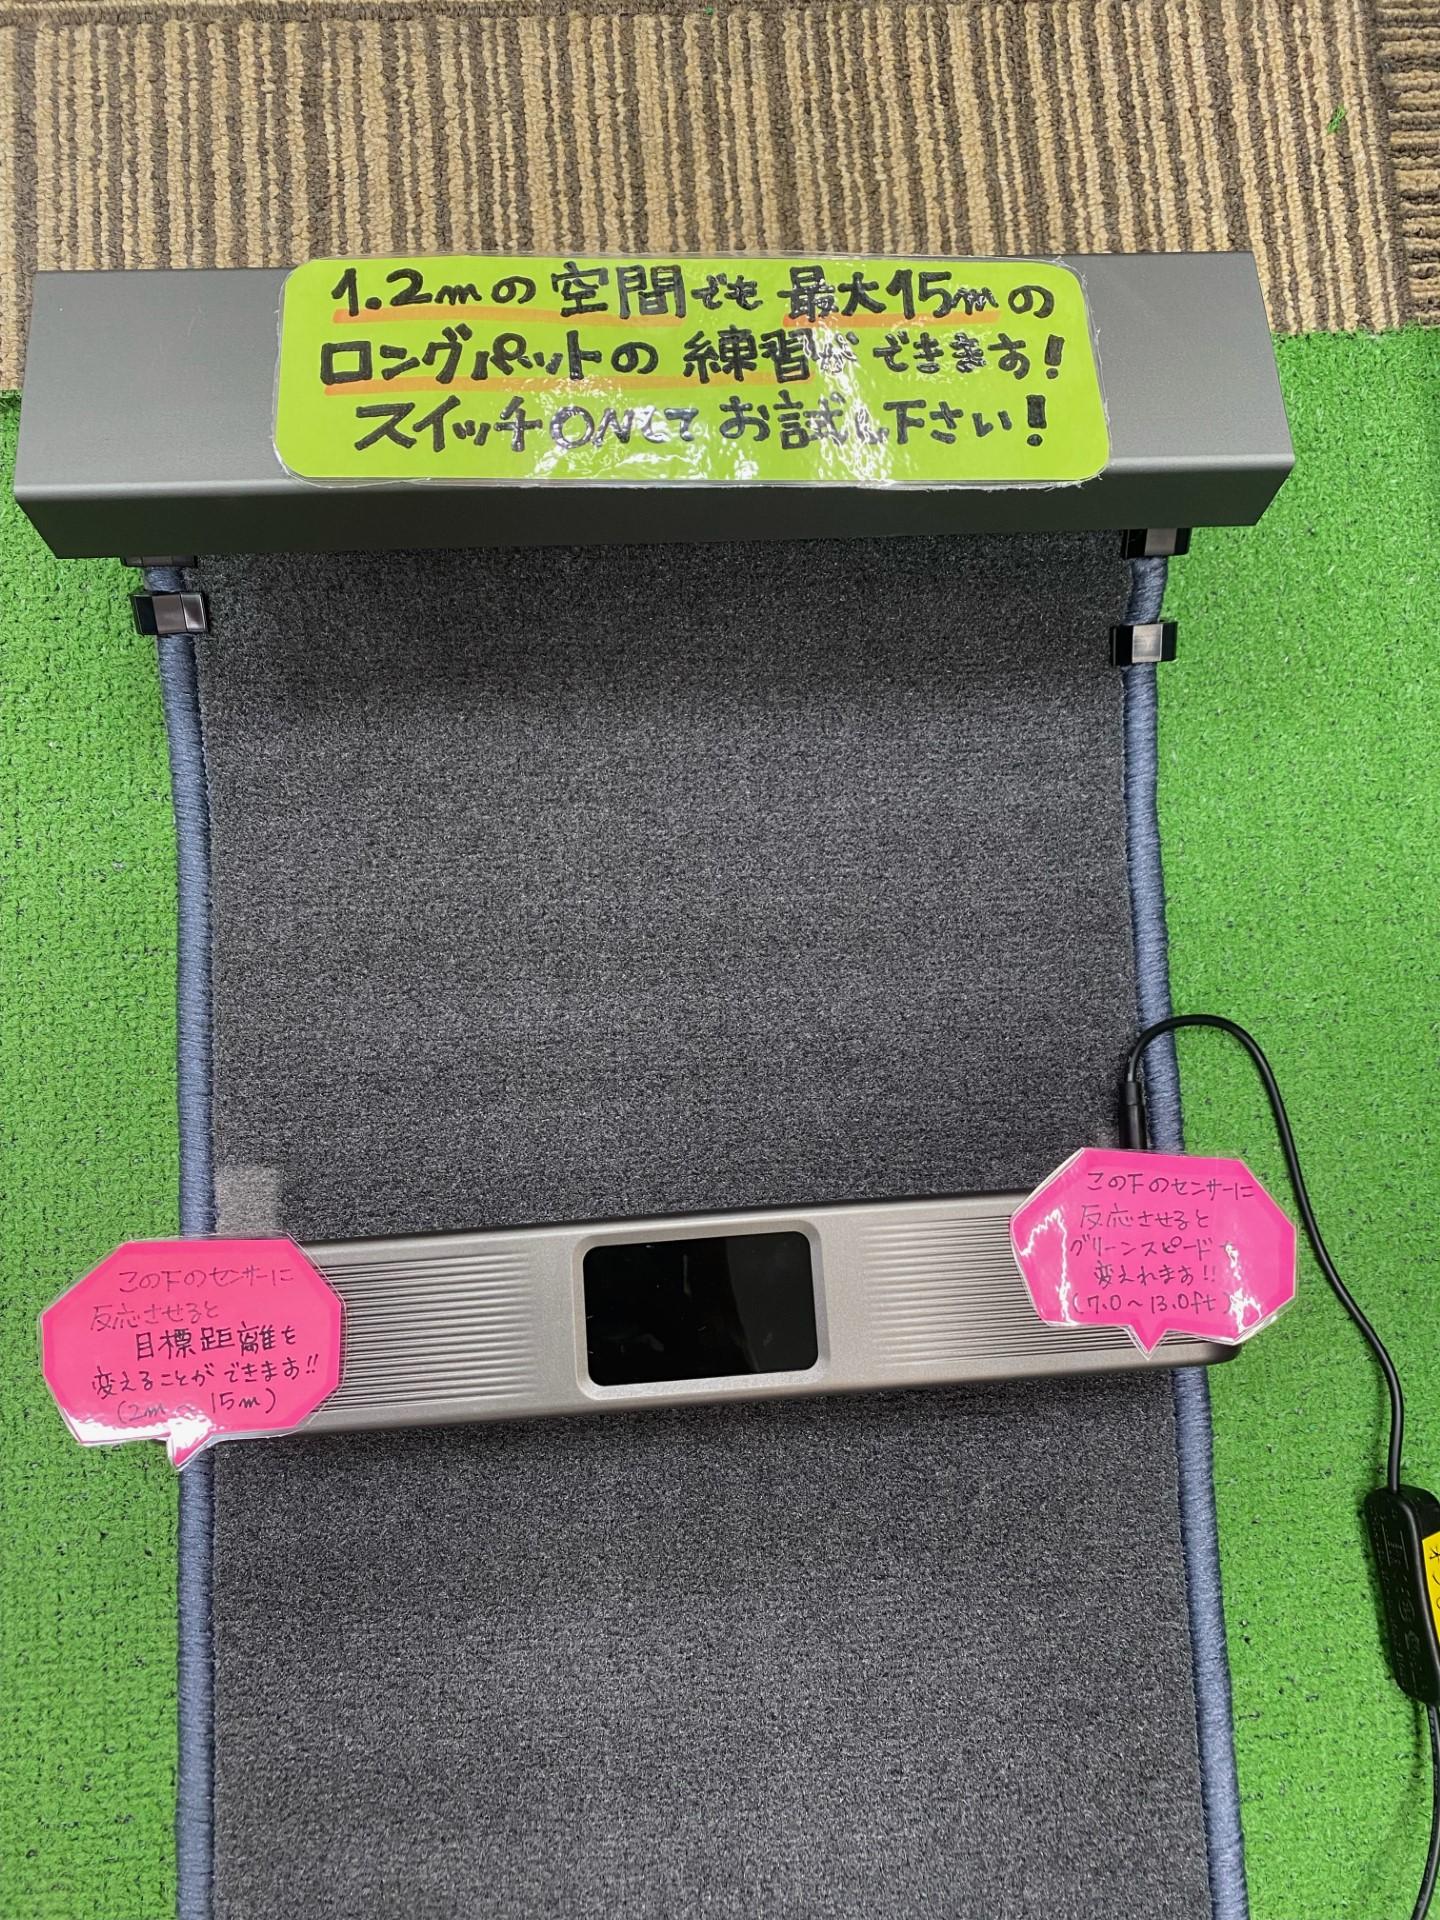 1.2mの空間でも最大15mの
ロングパットの練習ができます!
スイッチONしてお試し下さい!
この下のセンサーに
反応させると
グリーンスピードを
変えれます!!
(7.0～13.0ft)
この下のセンサーに
反応させると
目標距離を
変えることができます!!
(2m～15m)